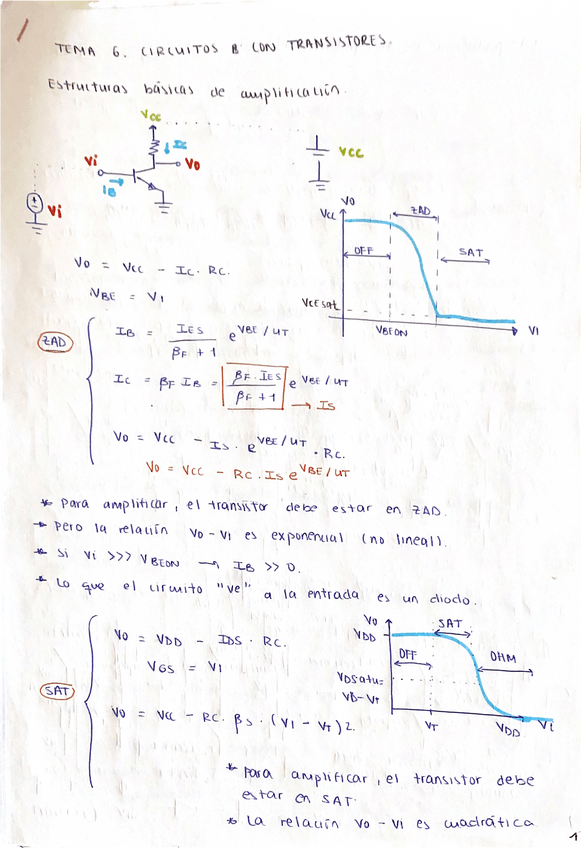 TEMA 6. CIRCUITOS B CON TRANSISTORES.
Estructuras básicas de amplificación.
Vcc
Ic
Vi
Vo
IB
Vi
Vcc
Vo
Vcc
ZAD
OFF
SAT
VCE sat
VBEON
VI
Vo = Vcc - Ic · Rc.
VBE = VI
ZAD
IB = IES / (βF + 1) e^VBE / UT
Ic = βF IB = βF · IES / (βF + 1) e^VBE / UT
→ Is
Vo = Vcc - Is · e^VBE / UT · Rc.
Vo = Vcc - Rc · Is e^VBE / UT
* Para amplificar, el transistor debe estar en ZAD.
* Pero la relación Vo - Vi es exponencial (no lineal).
* Si Vi >>> VBEON → IB >> 0.
* Lo que el circuito "ve" a la entrada es un diodo.
SAT
Vo = VDD - IDS · Rc.
VGS = VI
Vo = Vcc - Rc · βs · (VI - VT)2.
Vo
VDD
SAT
OFF
OHM
VDsatu=
VD-VT
VT
VDD
VI
* Para amplificar, el transistor debe
estar en SAT.
* La relación Vo - VI es cuadrática
1